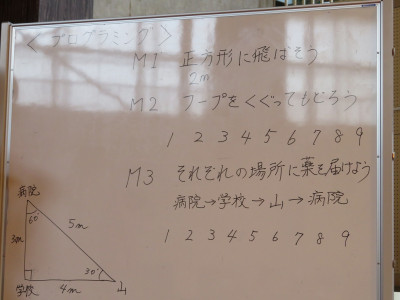 <プログラミング>
M1 正方形に飛ばそう
2m
M2 フープをくぐってもどろう
1 2 3 4 5 6 7 8 9
M3 それぞれの場所に薬を届けよう
病院→学校→山→病院
1 2 3 4 5 6 7 8 9
病院
60
5m
3m
30°
学校 4m 山